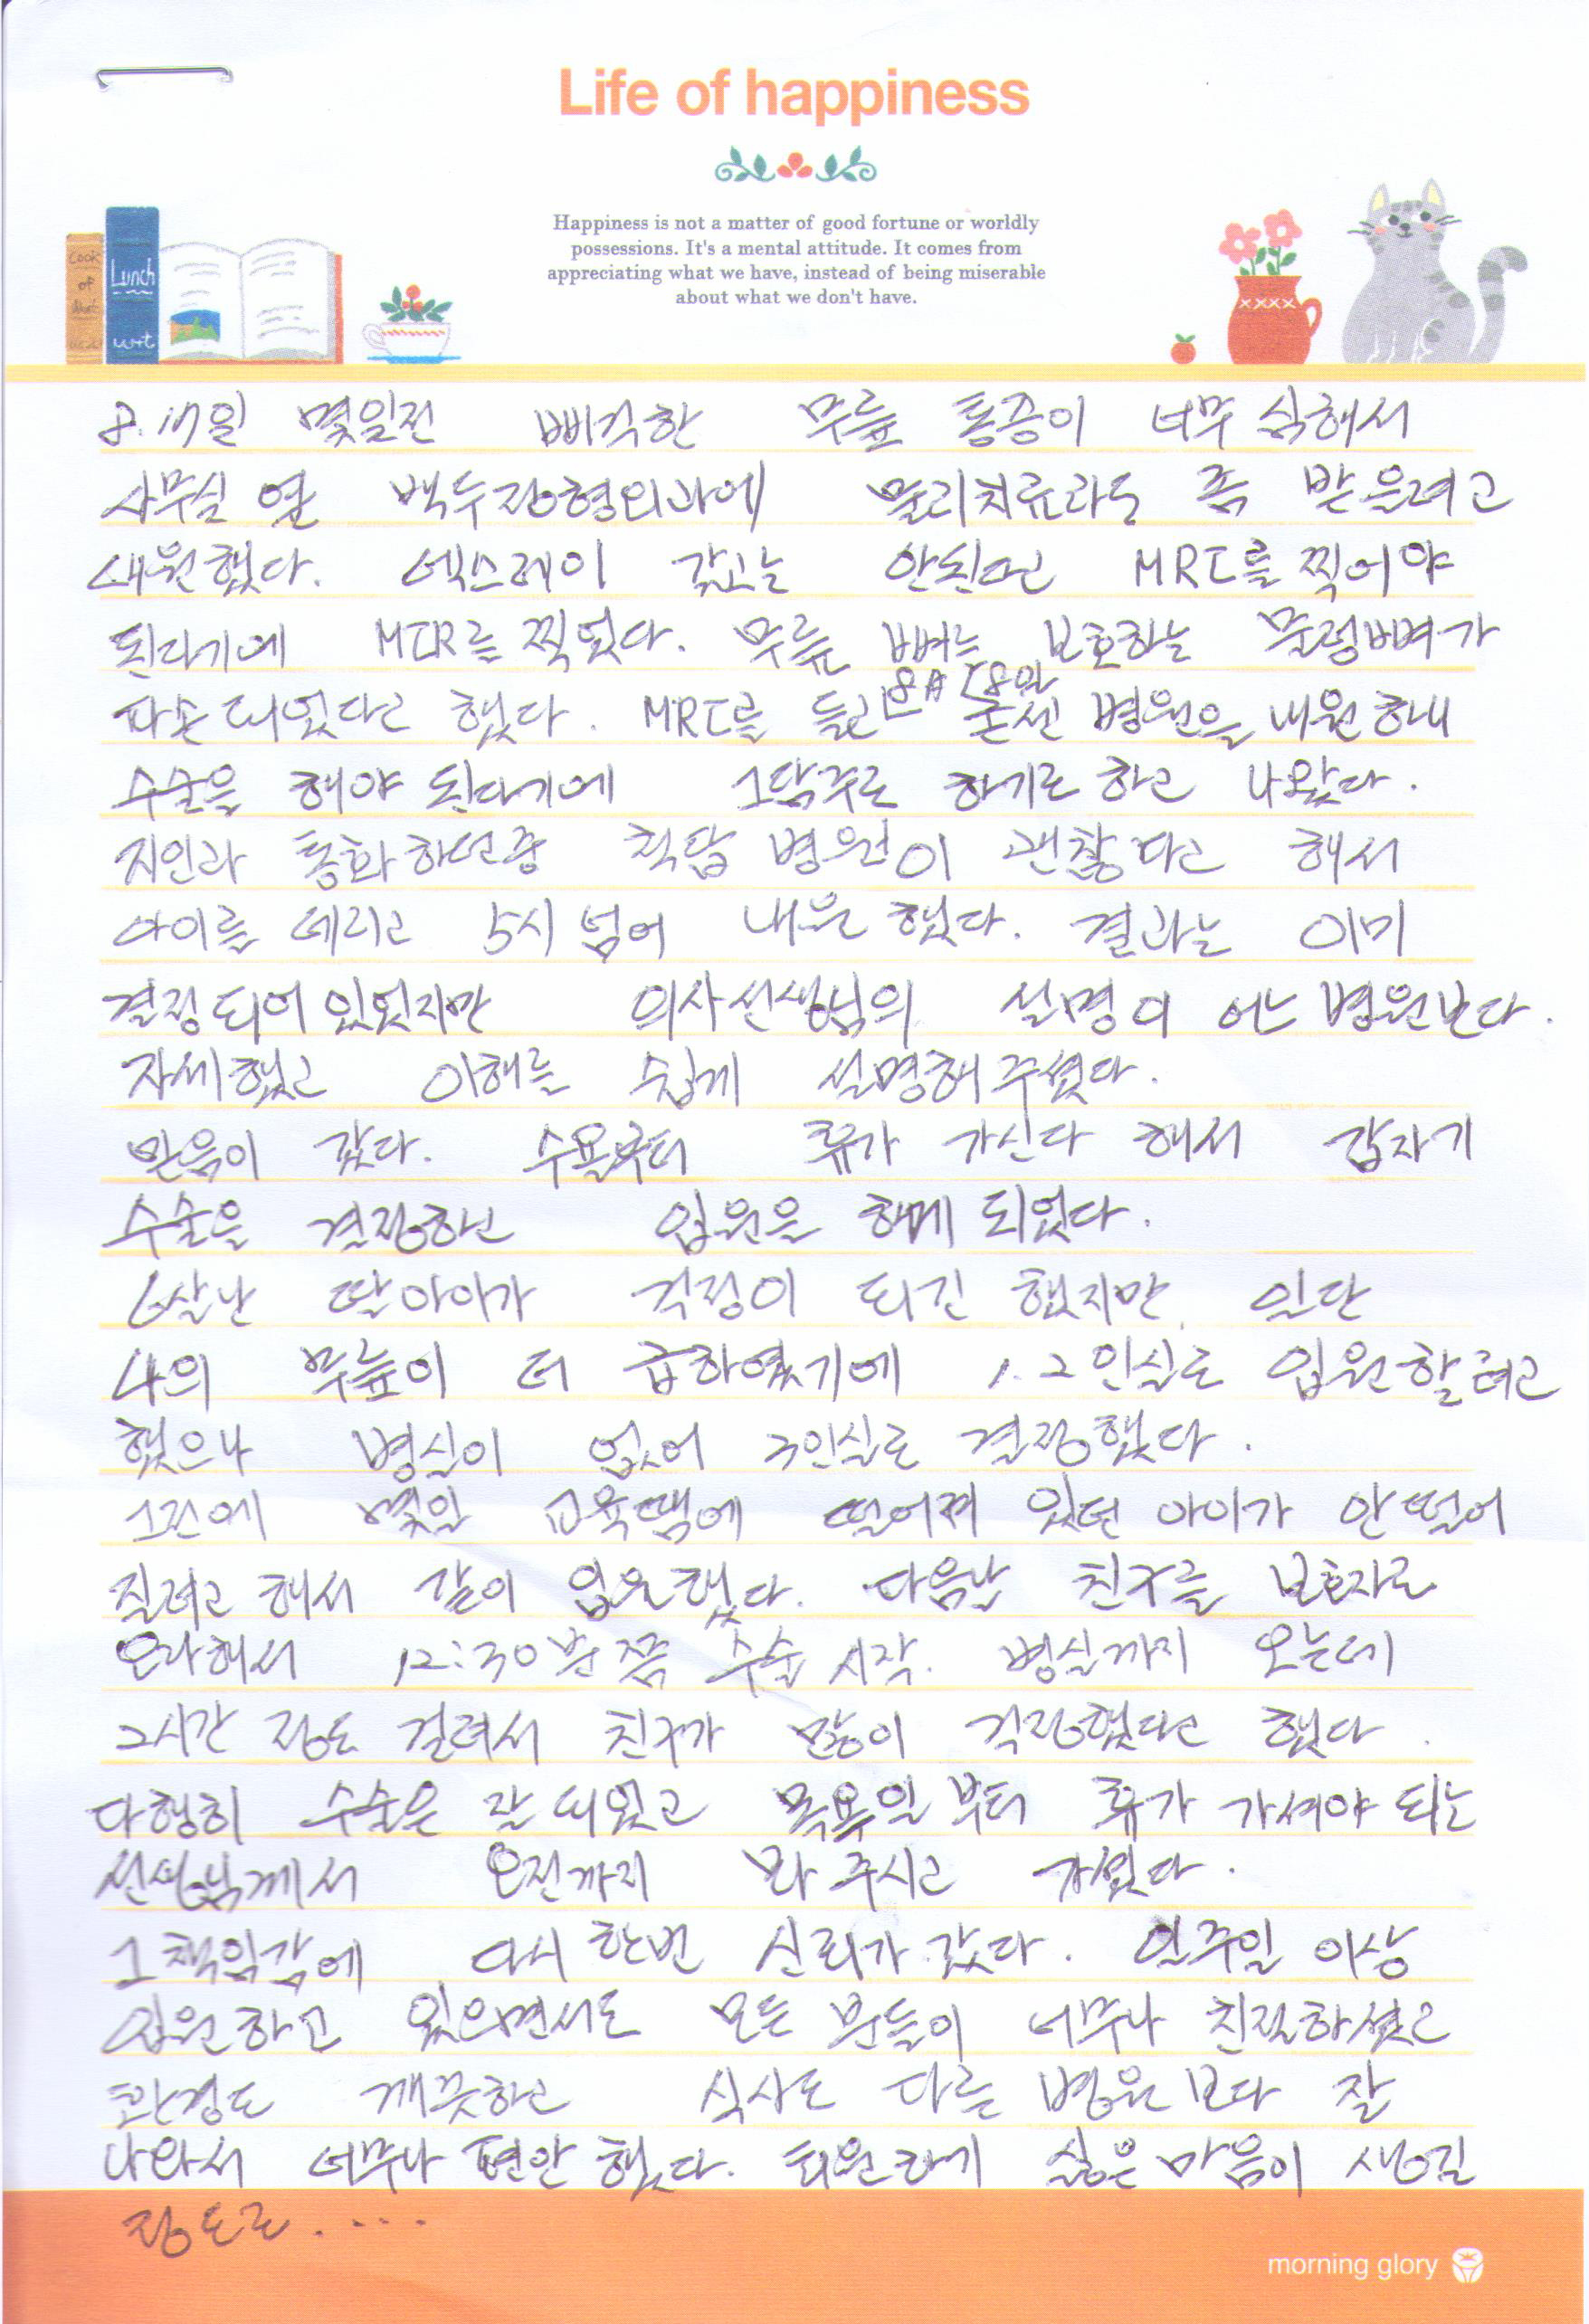 Life of happiness
Happiness is not a matter of good fortune or worldly
possessions. It's a mental attitude. It comes from
appreciating what we have, instead of being miserable
about what we don't have.
Cook
of
Lunch
8.17일 몇일전 삐걱한 무릎 통증이 너무 심해서
사무실 옆 백두정형외과에 물리치료라도 좀 받을려고
내원했다. 엑스레이 갖고는 안된다고 MRI를 찍어야
된다기에 MIR를 찍었다. 무릎 뼈는 보호하는 물렁뼈가
파손되었다고 했다. MRI를 들고 8月 18일 병원을 내원하니
수술을 해야 된다기에 그 담주로 하기로 하고 나왔다.
지인과 통화하던중 척탑 병원이 괜찮다고 해서
아이를 데리고 5시 넘어 내원 했다. 결과는 이미
결정되어 있었지만 의사선생님의 설명이 어느 병원보다.
자세했고 이해를 쉽게 설명해 주셨다.
믿음이 갔다. 수욜부터 휴가 가신다 해서 갑자기
수술을 결정하고 입원을 하게 되었다.
6살난 딸아이가 걱정이 되긴 했지만, 일단
나의 무릎이 더 급하였기에 1.2인실로 입원할려고
했으나 병실이 없어 3인실로 결정했다.
그전에 몇일 교육땜에 떨어져 있던 아이가 안떨어
질려고 해서 같이 입원했다. 다음날 친구를 보호자로
오라해서 12:30분쯤 수술 시작. 병실까지 오는데
2시간 정도 걸려서 친구가 많이 걱정했다고 했다.
다행히 수술은 잘 되었고 목욜일 부터 휴가 가셔야 되는
선생님께서 오전까지 봐 주시고 가셨다.
그 책임감에 다시 한번 신뢰가 갔다. 일주일 이상
입원하고 있으면서도 모든 분들이 너무나 친절하셨고
환경도 깨끗하고 식사도 다른 병원보다 잘
나와서 너무나 편안 했다. 퇴원하기 싫은 마음이 생길
정도로.....
morning glory